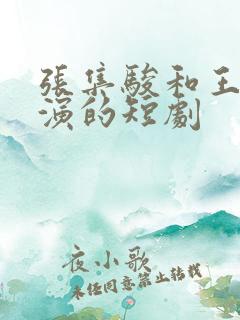 張集駿和王
演的短劇
夜小歌
未經同意禁止轉載